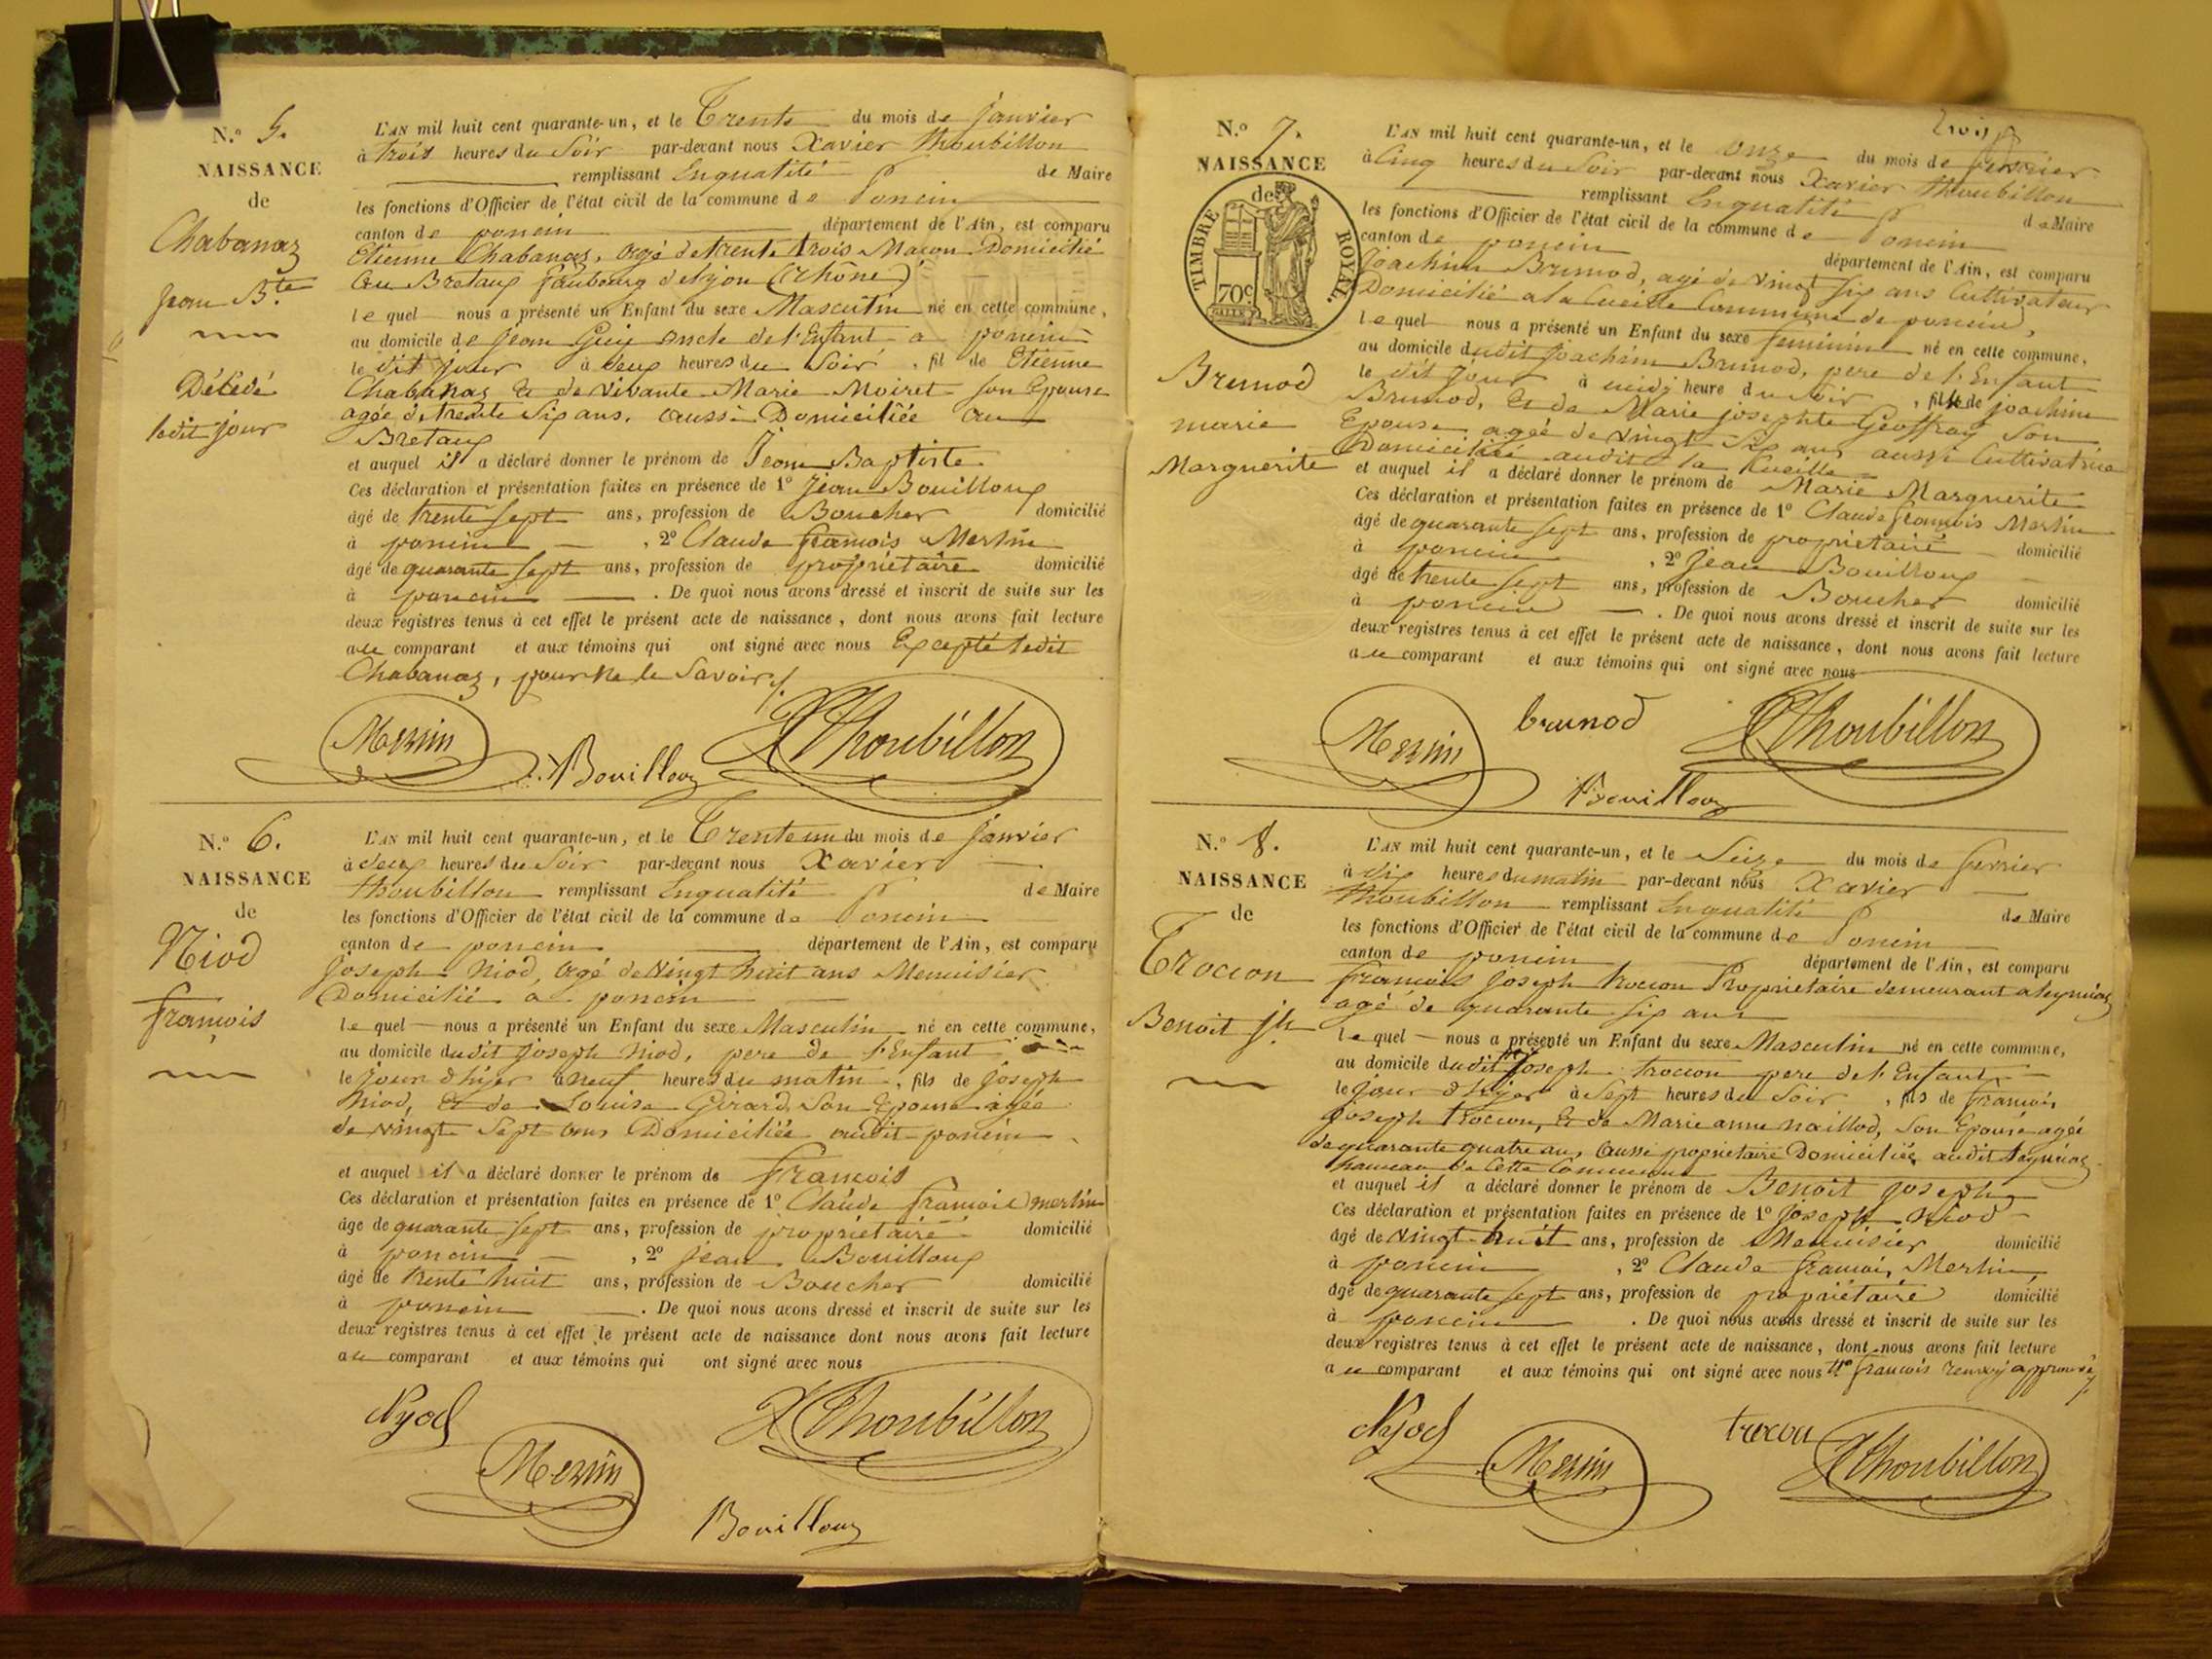 N.º 5.
NAISSANCE
de
Chabanaz
Jean B.te
Décédé
ledit jour
L'AN mil huit cent quarante-un, et le Trente du mois de janvier
à trois heures du Soir par-devant nous Xavier Thoubillon
remplissant Enqualité de Maire
les fonctions d'Officier de l'état civil de la commune de Poncin
canton de poncin département de l'Ain, est comparu
Etienne Chabanaz, agé de trente trois Macon Domicilié
au Bretaux faubourg de Lyon (Rhône)
le quel nous a présenté un Enfant du sexe Masculin né en cette commune,
au domicile de jean Guy oncle de l'Enfant a poncin
le dit jour à deux heures du Soir, fil de Etienne
Chabanaz & de vivante Marie Moiret son Epouse
agée de trente Six ans, aussi Domiciliée au
Bretaux
et auquel il a déclaré donner le prénom de Jean Baptiste
Ces déclaration et présentation faites en présence de 1º Jean Bouilloux
âgé de trente sept ans, profession de Boucher domicilié
à poncin, 2º Claude francois Merlin
âgé de quarante sept ans, profession de propriétaire domicilié
à poncin. De quoi nous avons dressé et inscrit de suite sur les
deux registres tenus à cet effet le présent acte de naissance, dont nous avons fait lecture
au comparant et aux témoins qui ont signé avec nous Excepté ledit
Chabanaz, pour ne le Savoir
Merlin Bouilloux Thoubillon
N.º 6.
NAISSANCE
de
Niod
francois
L'AN mil huit cent quarante-un, et le Trente un du mois de janvier
à deux heures du Soir par-devant nous Xavier
Thoubillon remplissant Enqualité de Maire
les fonctions d'Officier de l'état civil de la commune de Poncin
canton de poncin département de l'Ain, est comparu
joseph Niod, agé de vingt huit ans Menuisier
Domicilié a poncin
le quel nous a présenté un Enfant du sexe Masculin né en cette commune,
au domicile dudit joseph niod, pere de l'Enfant
le jour d'hyer à neuf heures du matin, fils de joseph
Niod, & de Louise Girard Son Epouse agée
de vingt Sept ans Domiciliée audit poncin
et auquel il a déclaré donner le prénom de francois
Ces déclaration et présentation faites en présence de 1º Claude francois merlin
âgé de quarante sept ans, profession de propriétaire domicilié
à poncin, 2º jean Bouilloux
âgé de trente huit ans, profession de Boucher domicilié
à poncin. De quoi nous avons dressé et inscrit de suite sur les
deux registres tenus à cet effet le présent acte de naissance dont nous avons fait lecture
au comparant et aux témoins qui ont signé avec nous
Nyod Merlin Thoubillon
Bouilloux
trois
N.º 7.
NAISSANCE
de
TIMBRE ROYAL.
70c
Brunod
marie
Marguerite
L'AN mil huit cent quarante-un, et le onze du mois de fevrier
à Cinq heures du Soir par-devant nous Xavier Thoubillon
remplissant Enqualité de Maire
les fonctions d'Officier de l'état civil de la commune de Poncin
canton de poncin département de l'Ain, est comparu
Joachim Brunod, agé de vingt six ans Cultivateur
Domicilié a la Cueille Commune de poncin,
le quel nous a présenté un Enfant du sexe feminin né en cette commune,
au domicile dudit joachim Brunod, pere de l'Enfant
le dit jour à midy heure du Soir, fille de joachim
Brunod, & de Marie josephte Geoffray Son
Epouse agée de vingt Six ans aussi Cultivatrice
Domiciliée audit la Cueille
et auquel il a déclaré donner le prénom de Marie Marguerite
Ces déclaration et présentation faites en présence de 1º Claude francois Merlin
âgé de quarante sept ans, profession de propriétaire domicilié
à poncin, 2º Jean Bouilloux
âgé de trente sept ans, profession de Boucher domicilié
à poncin. De quoi nous avons dressé et inscrit de suite sur les
deux registres tenus à cet effet le présent acte de naissance, dont nous avons fait lecture
au comparant et aux témoins qui ont signé avec nous
Merlin brunod Thoubillon
Bouilloux
N.º 8.
NAISSANCE
de
Trocon
Benoit jh
L'AN mil huit cent quarante-un, et le Seize du mois de fevrier
à dix heures du matin par-devant nous Xavier
Thoubillon remplissant Enqualité de Maire
les fonctions d'Officier de l'état civil de la commune de Poncin
canton de poncin département de l'Ain, est comparu
francois Joseph trocon Propriétaire demeurant a
agé de quarante six ans
le quel nous a présenté un Enfant du sexe Masculin né en cette commune,
au domicile dudit Joseph trocon pere de l'Enfant
le jour d'hyer à Sept heures du Soir, fils de francois
Joseph trocon, & de Marie anne naillod, Son Epouse agée
de quarante quatre ans, aussi propriétaire Domiciliée audit
hameau de Cette Commune
et auquel il a déclaré donner le prénom de Benoit Joseph
Ces déclaration et présentation faites en présence de 1º Joseph Niod
âgé de vingt huit ans, profession de Menuisier domicilié
à poncin, 2º Claude francois Merlin
âgé de quarante sept ans, profession de propriétaire domicilié
à poncin. De quoi nous avons dressé et inscrit de suite sur les
deux registres tenus à cet effet le présent acte de naissance, dont nous avons fait lecture
au comparant et aux témoins qui ont signé avec nous francois renvoy approuvé
Nyod Merlin trocon Thoubillon